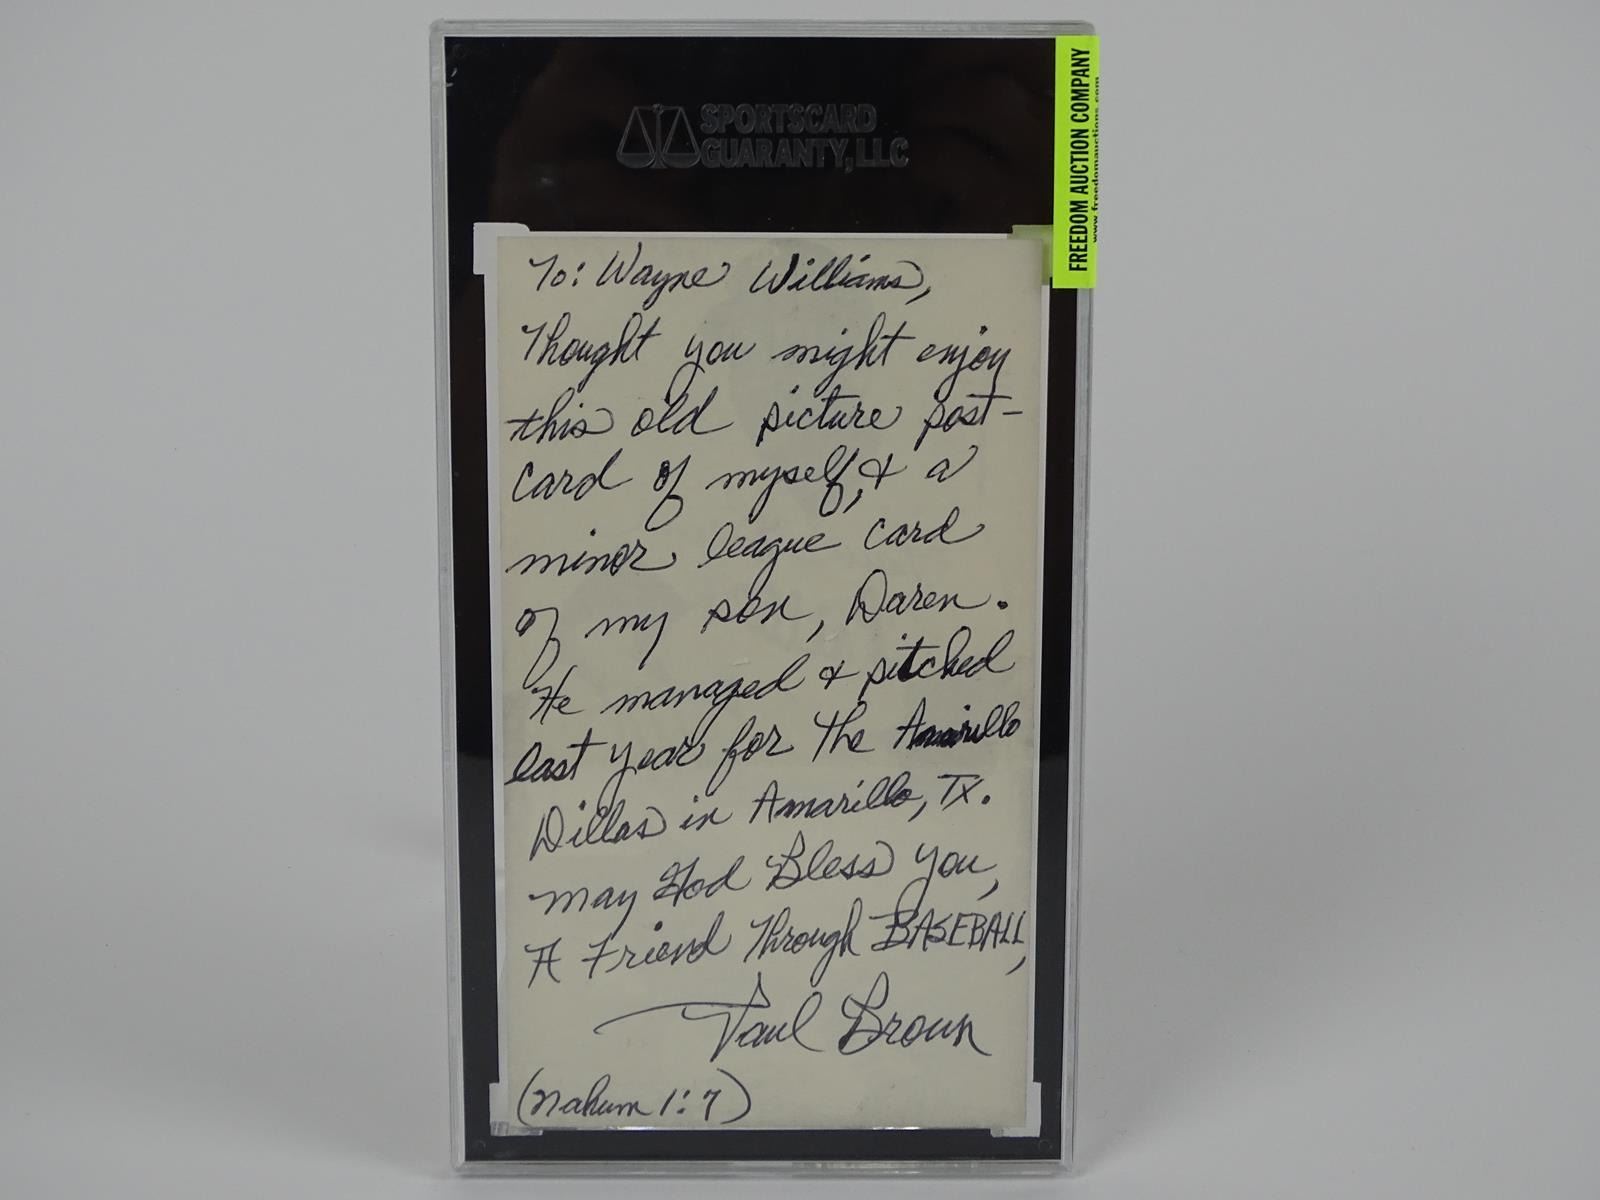 SPORTSCARD
GUARANTY, LLC
FREEDOM AUCTION COMPANY
www.freedomauctions.com
To: Wayne Williams,
Thought you might enjoy
this old picture post-
card of myself, & a
minor league card
of my son, Daren.
He managed & pitched
last year for the Amarillo
Dillas in Amarillo, TX.
May God Bless you,
A Friend Through BASEBALL,
Paul Brown
(Nahum 1:7)